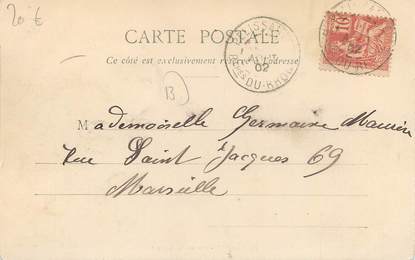 20 €
CARTE POSTALE
Ce côté est exclusivement réservé à l'adresse
02
DU-RHÔNE
10
02
B
Mademoiselle Germaine
Rue Saint Jacques 69
Marseille